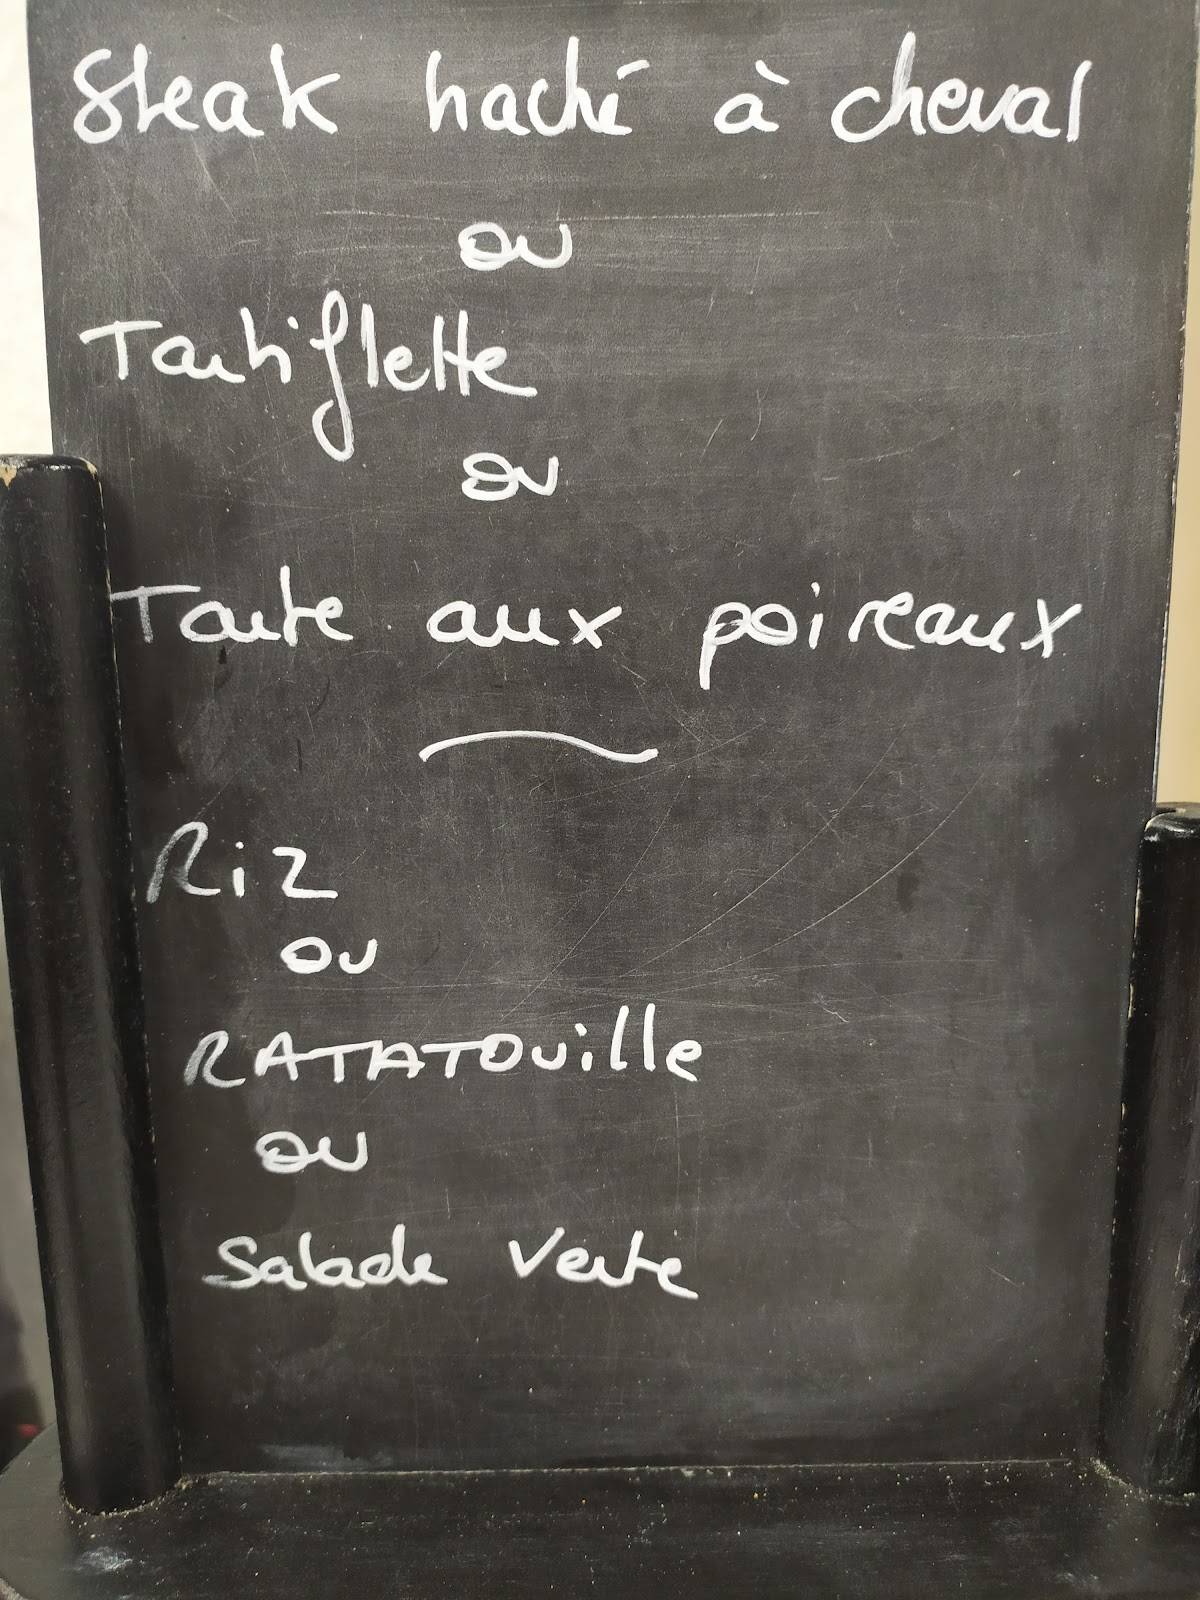 Steak haché à cheval
ou
Tartiflette
ou
Tarte aux poireaux
Riz
ou
RATATOuille
ou
Salade Verte